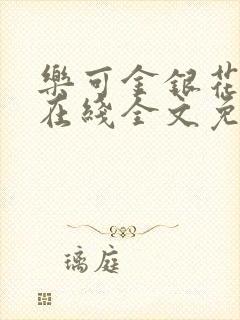 樂可金銀花
在綫全文免
璃庭